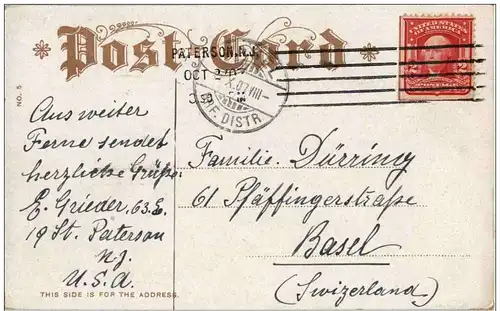 Post Card
UNITED STATES OF AMERICA
PATERSON, N.J.
OCT 2
BRF. DISTR.
NO. 5
Aus weiter
Ferne sendet
herzliche Grüße
E. Grieder, 63 E.
19 St. Paterson
N.J.
U.S.A
Familie. Dürring
61 Pfäffingerstraße
Basel
(Swizerland.)
THIS SIDE IS FOR THE ADDRESS.